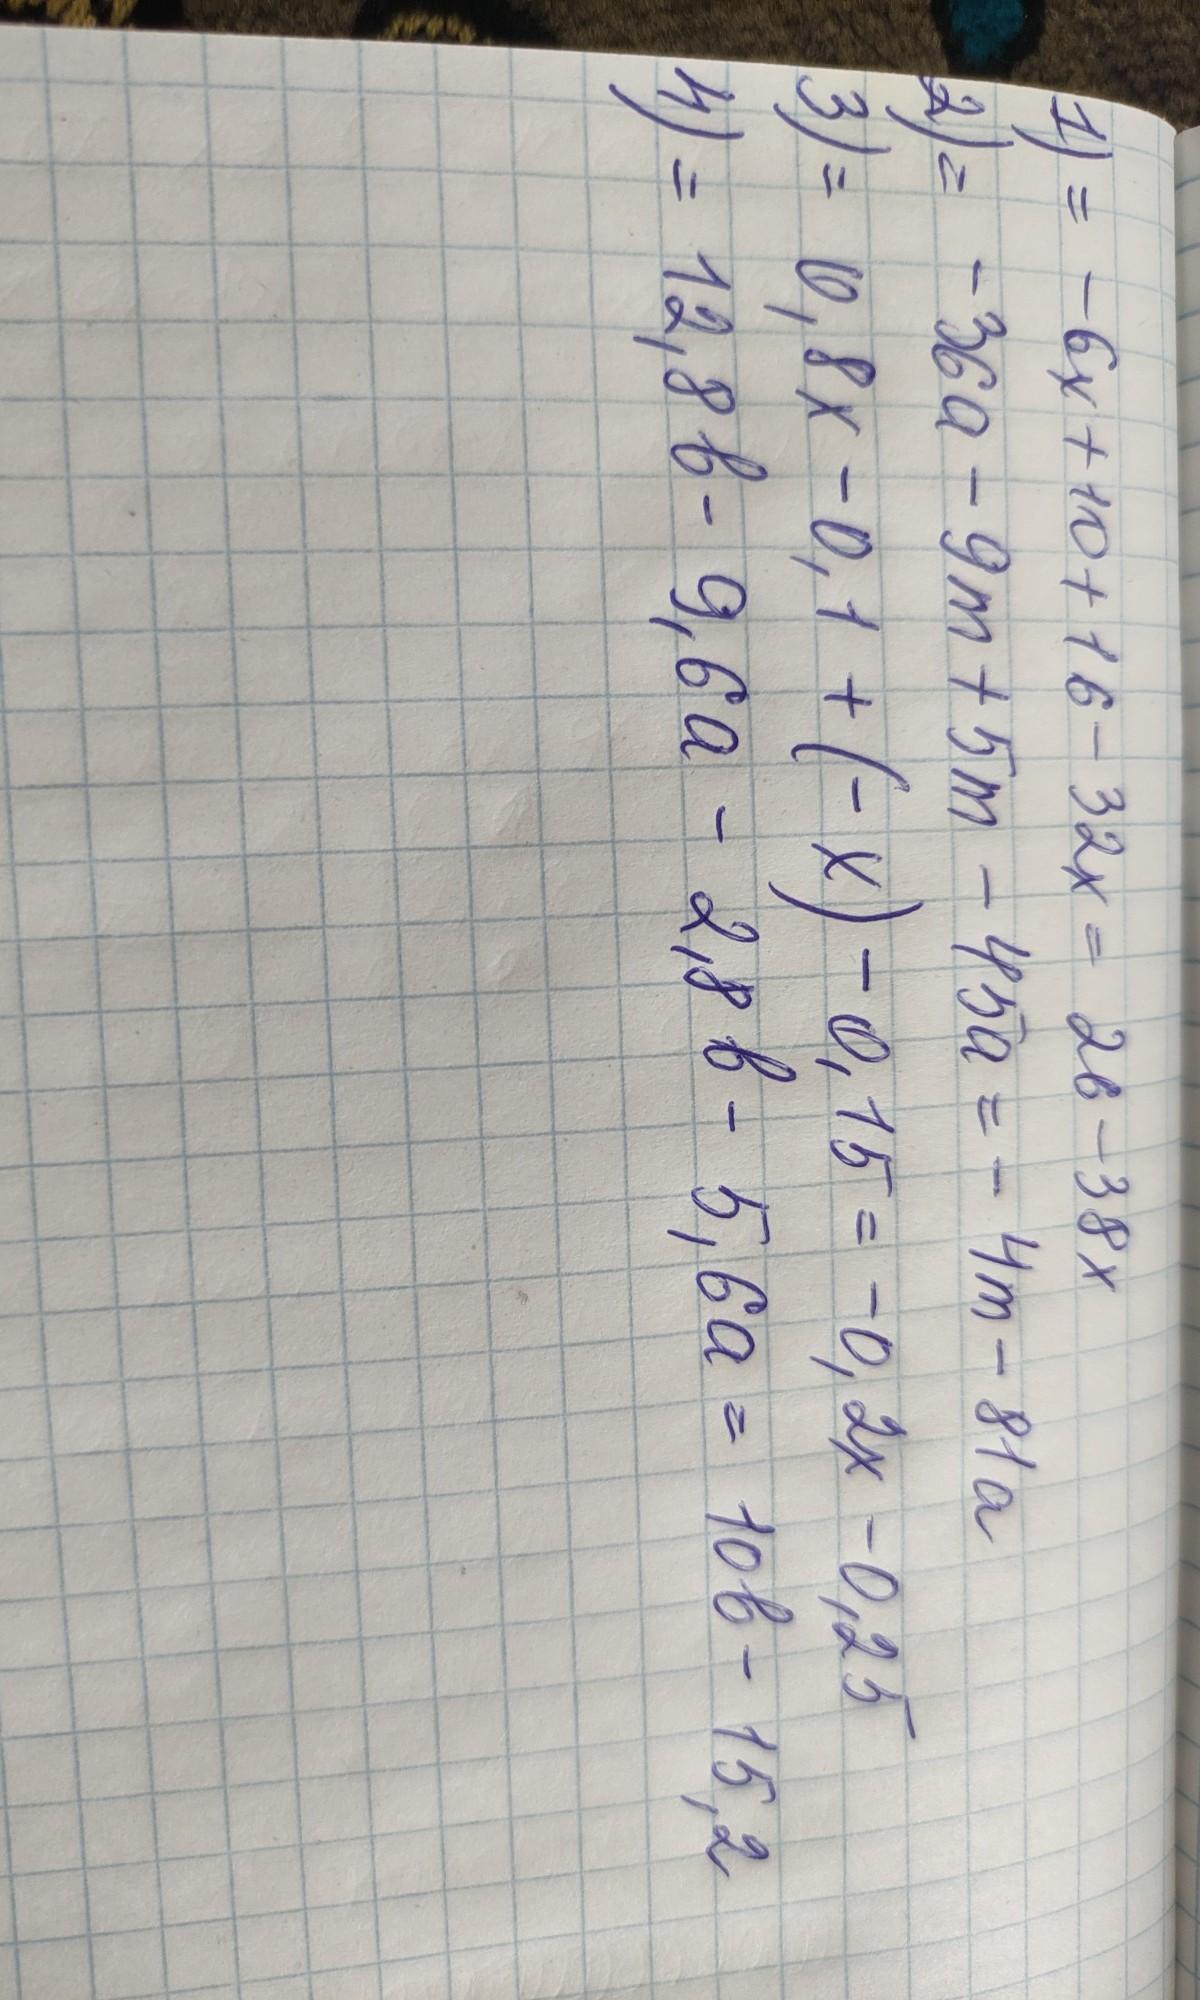 1) = -6x+10+16-32x= 26-38x
2)= -36a-9m+5m-45a=-4m-81a
3)= 0,8x-0,1+(-x)-0,15=-0,2x-0,25
4)= 12,8b-9,6a-2,8b-5,6a= 10b-15,2